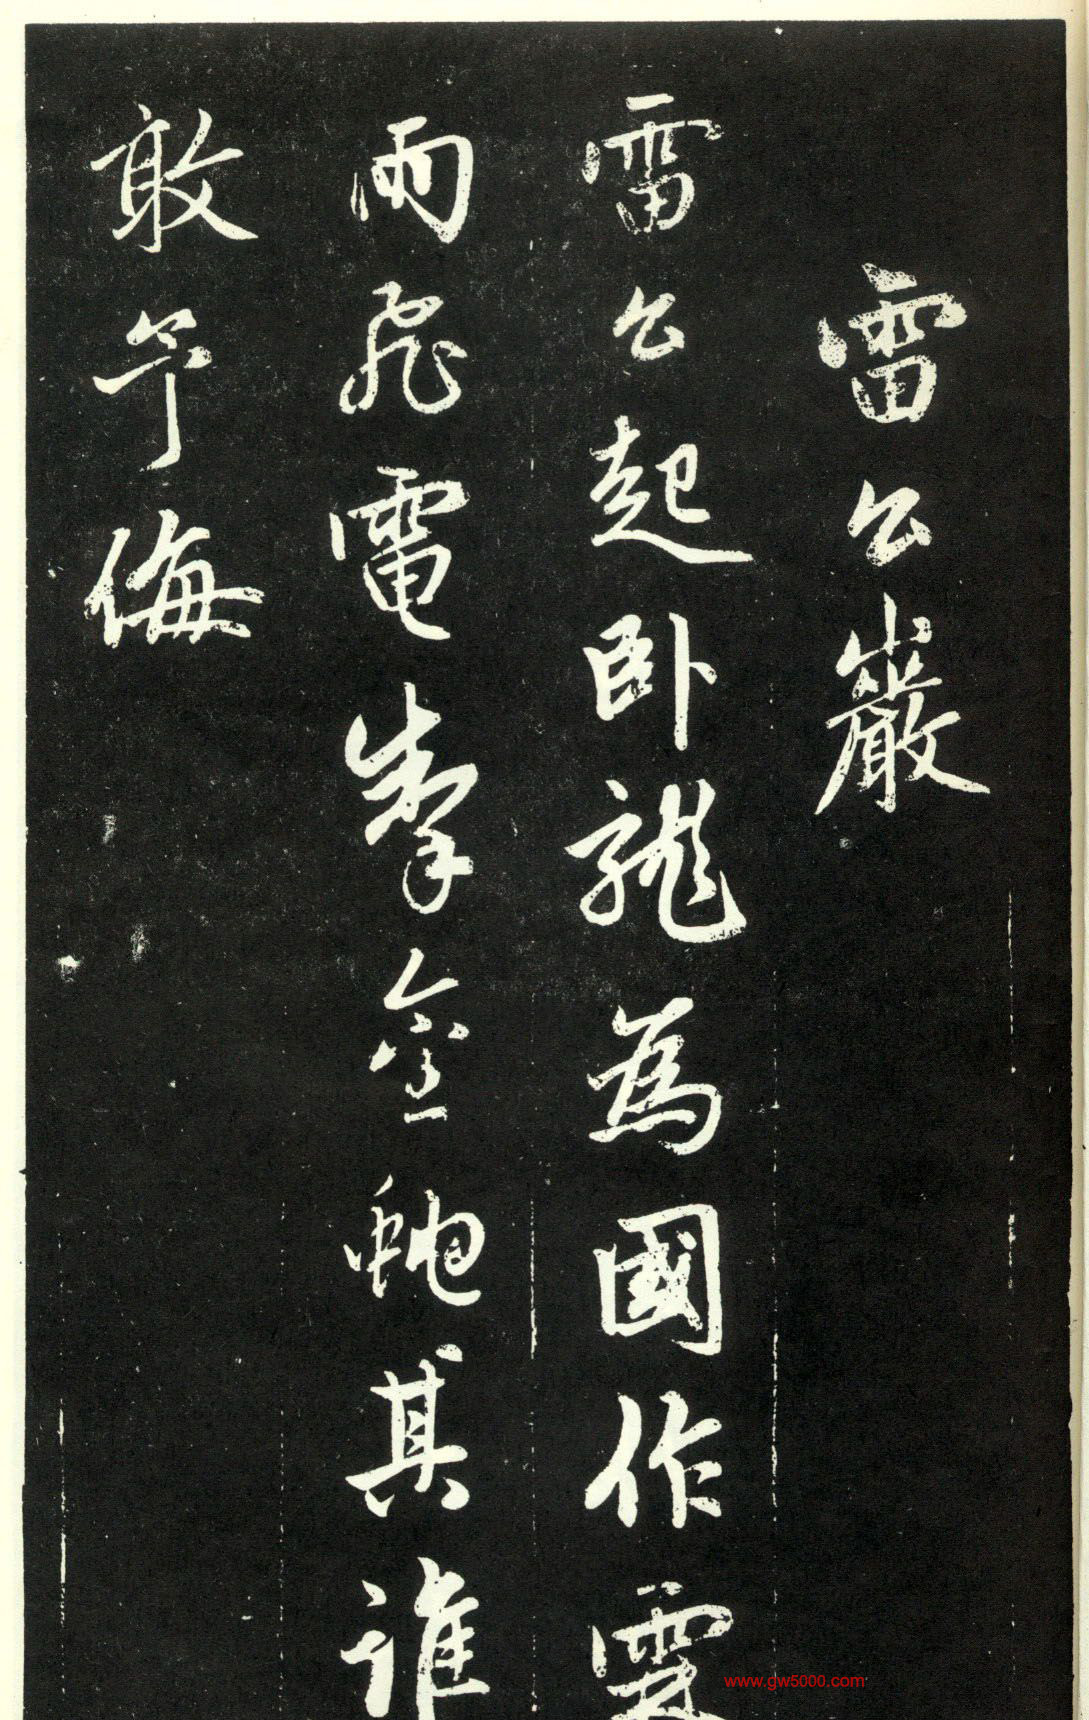 雷公巖
雷公起卧龍為國作霖
雨飛電掣金虵其誰
敢予侮
www.gw5000.com